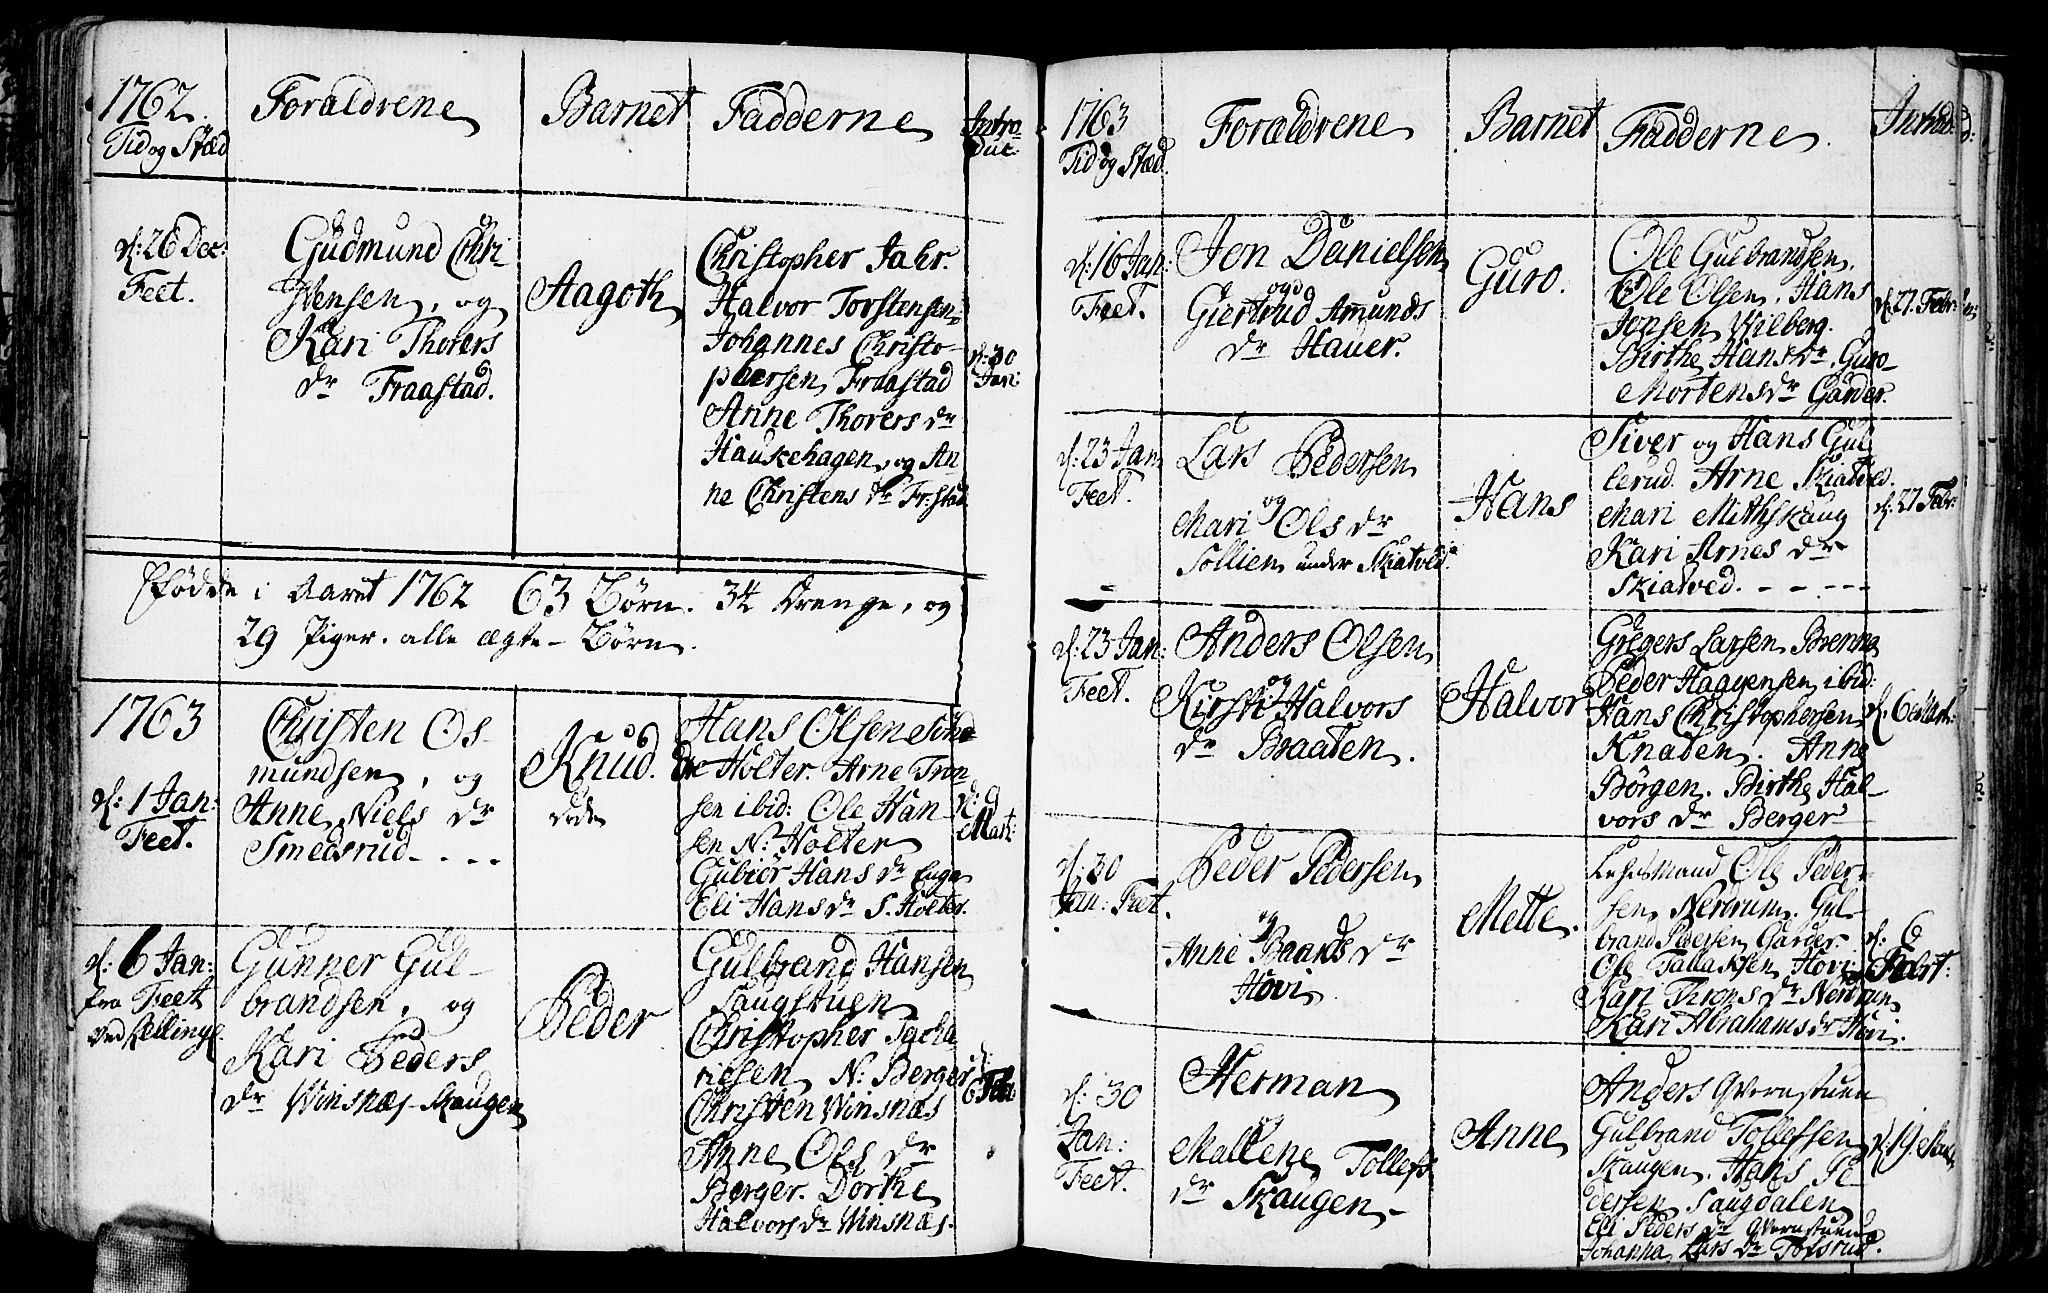 1762.
Tid og Stæd
Forældrene
Barnet
Fadderne
Intro
duc:
d: 26 Dec:
Feet.
Gudmund Chri-
stensen, og
Kari Thorers
dr Fraastad.
Aagoth
Christopher Jahr.
Halvor Torstensen
Johannes Christo-
phersen Fraastad
Anne Thorers dr
Haukehagen, og An
ne Christens dr Fr:stad
d: 30
Jan:
Fødde i Aaret 1762 63 Børn. 34 Drenge, og
29 Piger. alle ægte-Børn.
1763
d: 1 Jan:
Feet.
Christen Os-
mundsen, og
Anne Niels dr
Smedsrud - . . -
Knud.
døde
Hans Olsen
Holter. Arne Tron
sen ibid: Ole Han
sen N. Holter
Gubiør Hans dr Enge
Eli Hans dr S. Holter.
d: 9
Mart:
d: 6 Jan:
fra Feet
ved
Gunner Gul-
brandsen, og
Kari Peders
dr Winsnæs-Skaugen
Peder
Gulbrand Hansen
Saugstuen
Christopher Sacha
riesen N. Berger
Christen Winsnæs
Anne Ols dr
Berger. Dorthe
Halvors dr Winsnæs.
d:
6 Feb:
1763
Tid og Stæd.
Forældrene
Barnet
Fadderne.
Introd:
d: 16 Jan:
Feet.
Jon Danielsen
og
Giertrud Amunds
dr Hauer.
Guro.
Ole Gulbrandsen.
Ole Olsen. Hans
Jensen Wilberg.
Birthe Hans dr. Guro
Mortens dr Garder.
d: 27. Febr:
d: 23 Jan
Feet.
Lars Pedersen
og
Mari Ols dr
Sollien under Skiatved.
Hans
Siver og Hans Gul
lerud. Arne Skiatved.
Mari Mithskaug
Kari Arnes dr
Skiatved. - - - - -
d: 27 Febr:
d: 23 Jan:
Feet.
Anders Olsen
og
Kirsti Halvors
dr Braaten.
Halvor
Gregers Larsen Brenne
Peder Haagensen ibid:
Hans Christophersen
Knaten. Anne
Børgen. Birthe Hal-
vors dr Berger
d: 6 Mart:
d: 30
Jan: Feet.
Peder Pedersen
og
Anne Baards dr
Hovi
Mette.
Lehsmand Ole Peder-
sen Nerdrum. Gul-
brand Pedersen Garder.
Ole Tallaksen Hovi
Kari Throns dr Nerdrum
Kari Abrahams dr Hovi.
d: 6
Mart:
d: 30
Jan:
Feet.
Herman
og
Mallene Tollefs
dr Skaugen -
Anne
Anders Qvernstuen
Gulbrand Tollefsen
Skaugen. Hans Pe-
dersen Saugdalen
Eli Peders dr Qvernstuen
Johanna Lars dr Tofsrud.
d: 19. Mart